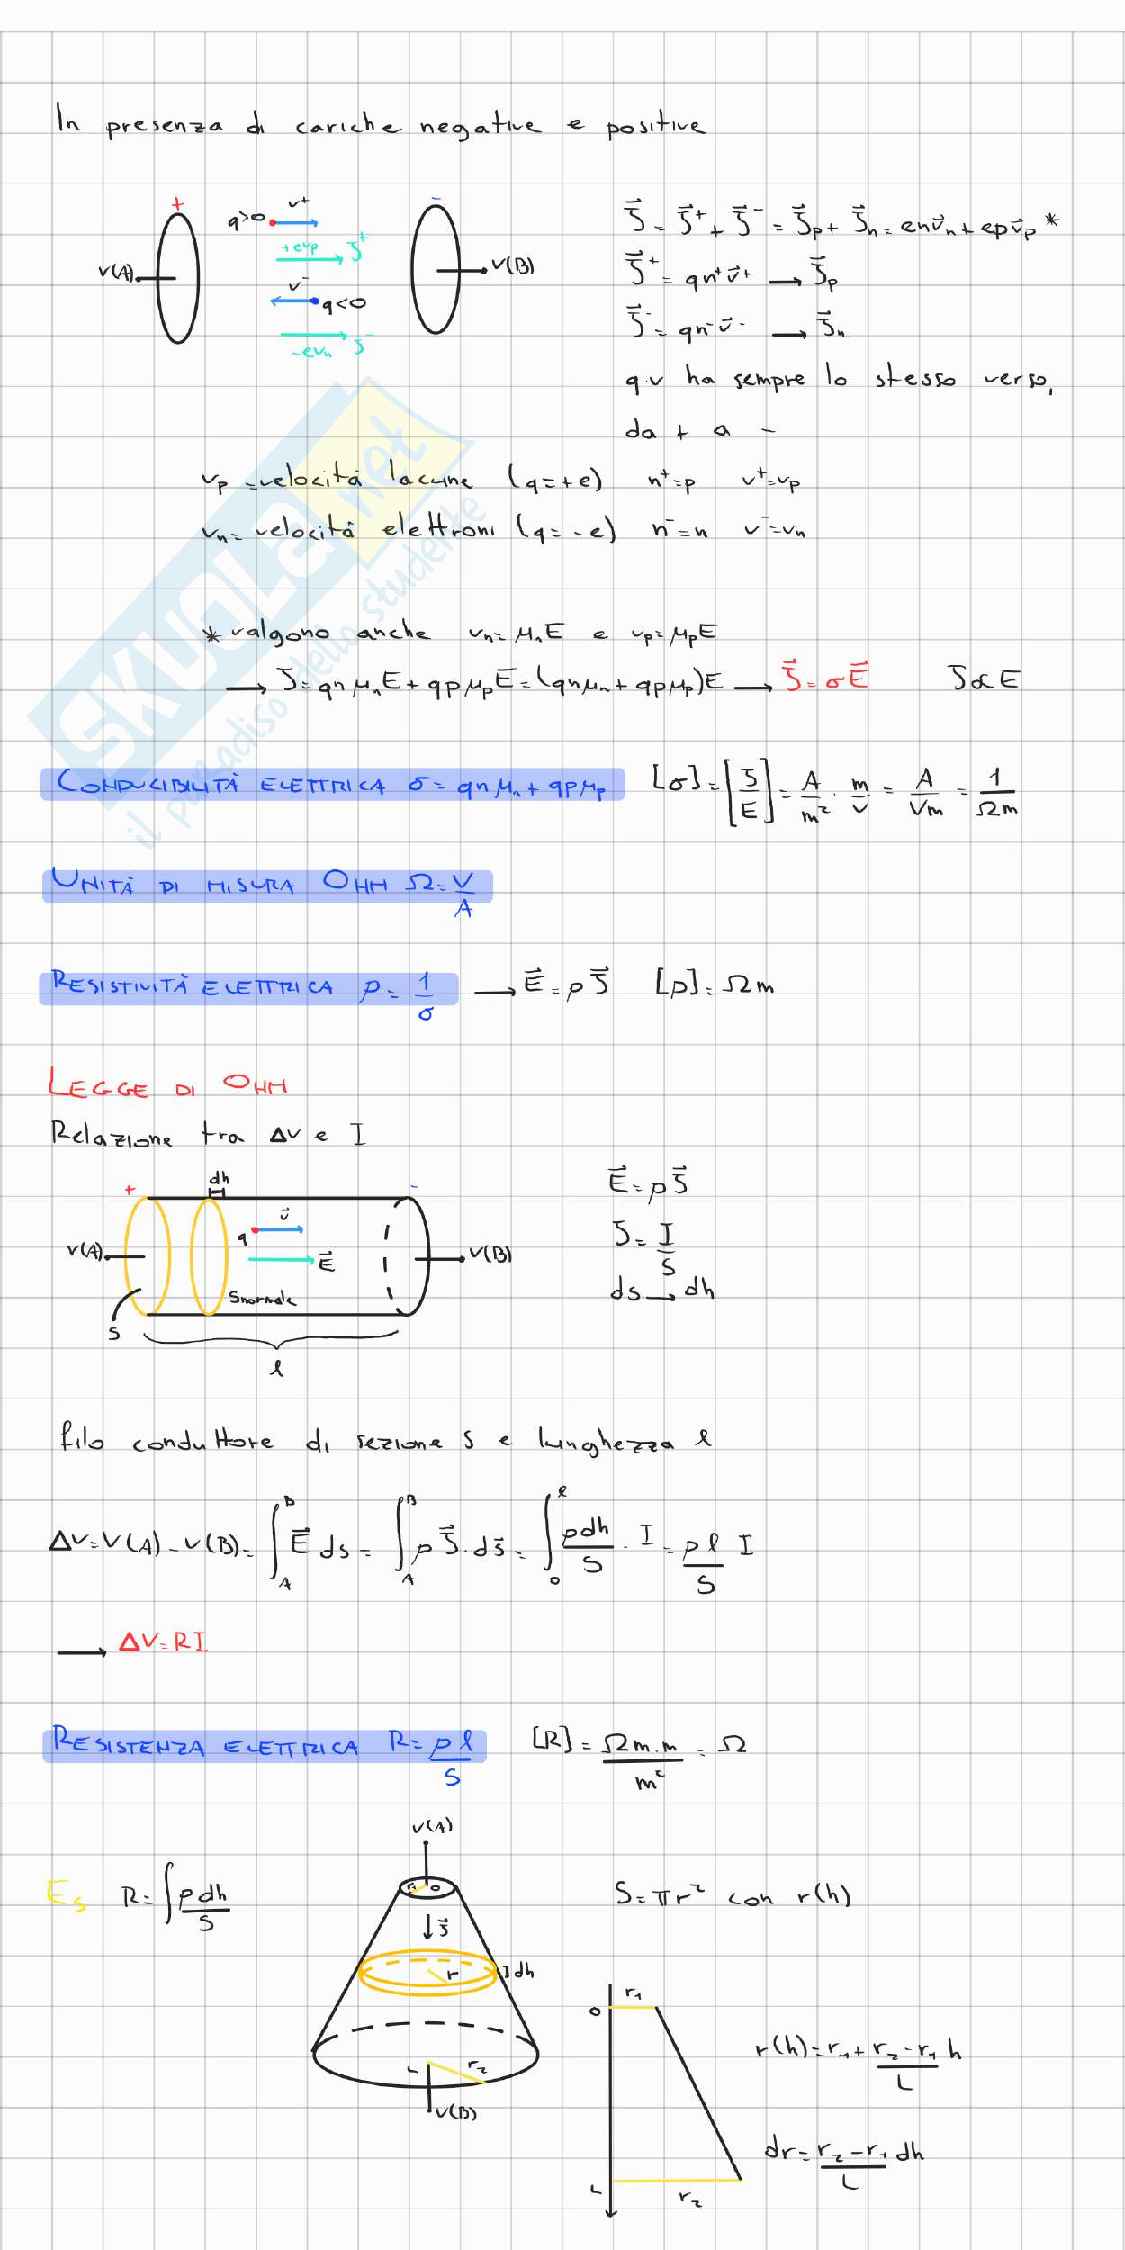 In presenza di cariche negative e positive
+
-
q>0
v⁺
+evp
J⃗⁺
V(A)
V(B)
v⁻
q<0
-evn
J⃗⁻
J⃗ = J⃗⁺ + J⃗⁻ = J⃗p + J⃗n = env⃗n + epv⃗p *
J⃗⁺ = qn⁺v⃗⁺ → J⃗p
J⃗⁻ = qn⁻v⃗⁻ → J⃗n
q.v ha sempre lo stesso verso,
da + a -
vp = velocità lacune (q=+e) n⁺=p v⁺=vp
vn = velocità elettroni (q=-e) n⁻=n v⁻=vn
* valgono anche vn=μnE e vp=μpE
→ J = qnμnE + qpμpE = (qnμn + qpμp)E → J⃗ = σE⃗ J∝E
CONDUCIBILITÀ ELETTRICA σ = qnμn + qpμp [σ] = [J/E] = A/m² · m/V = A/Vm = 1/Ωm
UNITÀ DI MISURA OHM Ω = V/A
RESISTIVITÀ ELETTRICA ρ = 1/σ → E⃗ = ρJ⃗ [ρ] = Ωm
LEGGE DI OHM
Relazione tra ΔV e I
+
dh
-
v⃗
q
V(A)
E⃗
V(B)
Snormale
S
l
E⃗ = ρJ⃗
J = I/S
ds → dh
filo conduttore di sezione S e lunghezza l
ΔV = V(A) - V(B) = ∫_A^B E⃗ ds = ∫_A^B ρJ⃗·ds⃗ = ∫_0^l ρdh/S · I = ρl/S I
→ ΔV = RI
RESISTENZA ELETTRICA R = ρl/S [R] = Ωm·m/m² = Ω
V(A)
Es R = ∫ρdh/S
O
J⃗
r
dh
L
r₂
V(B)
S = πr² con r(h)
r₁
O
r(h) = r₁ + r₂-r₁/L h
dr = r₂-r₁/L dh
L
r₂
SKUOLA.net
il paradiso dello studente